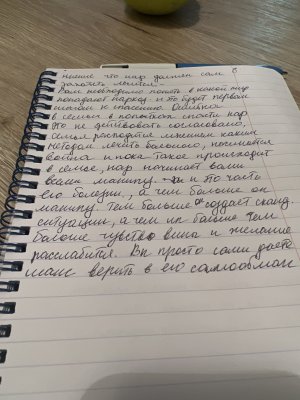 мнение что нар должен сам
захотеть лечится.
Вам необходимо понять в какой мир
попадают наркоз. и это будет первым
шагом к спасению. Ошибка
в семьи в попытках спасти нар
это не действовать согласовано,
семья расходится мнением каким
методом лечить больного, начинается
война и пока такое происходит
в семье, нар начинает вами
всеми манипу. и это часть
его болезни, а чем больше он
манипу. тем больше создает сканд.
ситуации, а чем их больше тем
больше чувство вины и желание
расслабится. Вы просто сами даете
шанс верить в его самообман